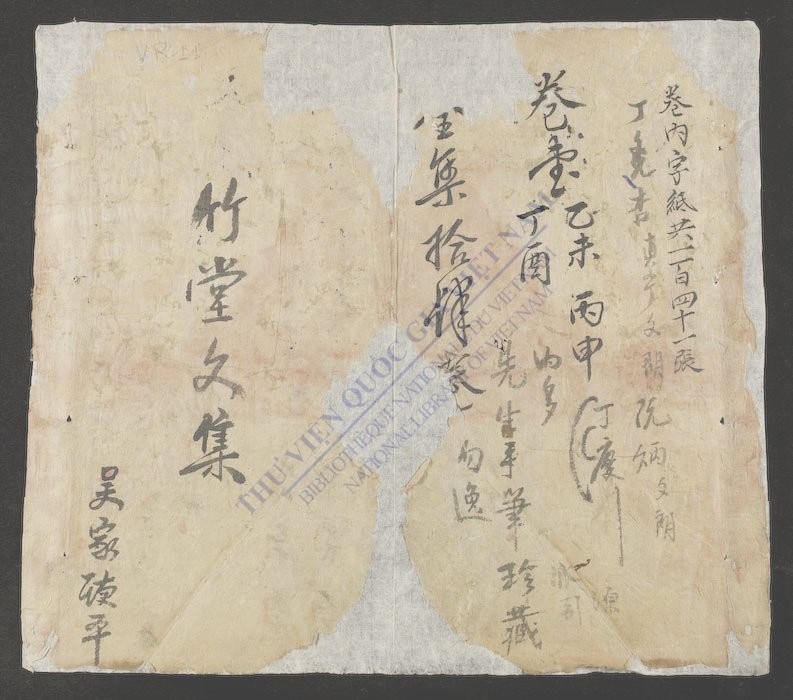 VR.11
卷內字紙共二百四十一張
阮炳文朗
乙未 丙申
卷壹
丁酉
內多
先生手筆珍藏
全集拾肆卷
勿逸
竹堂文集
吳家
平
THƯ VIỆN QUỐC GIA VIỆT NAM
BIBLIOTHÈQUE NATIONALE DU VIETNAM
NATIONAL LIBRARY OF VIETNAM